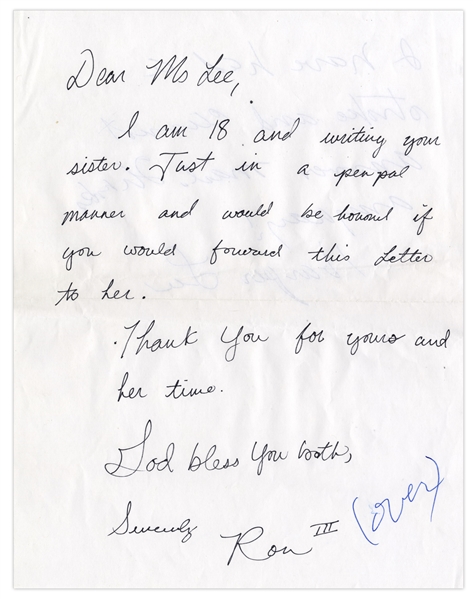 Dear Ms Lee,
I am 18 and writing your
sister. Just in a pen pal
manner and would be honord if
you would forward this Letter
to her.
Thank You for yours and
her time.
God bless You both,
Sincerely
Ron III
(over)